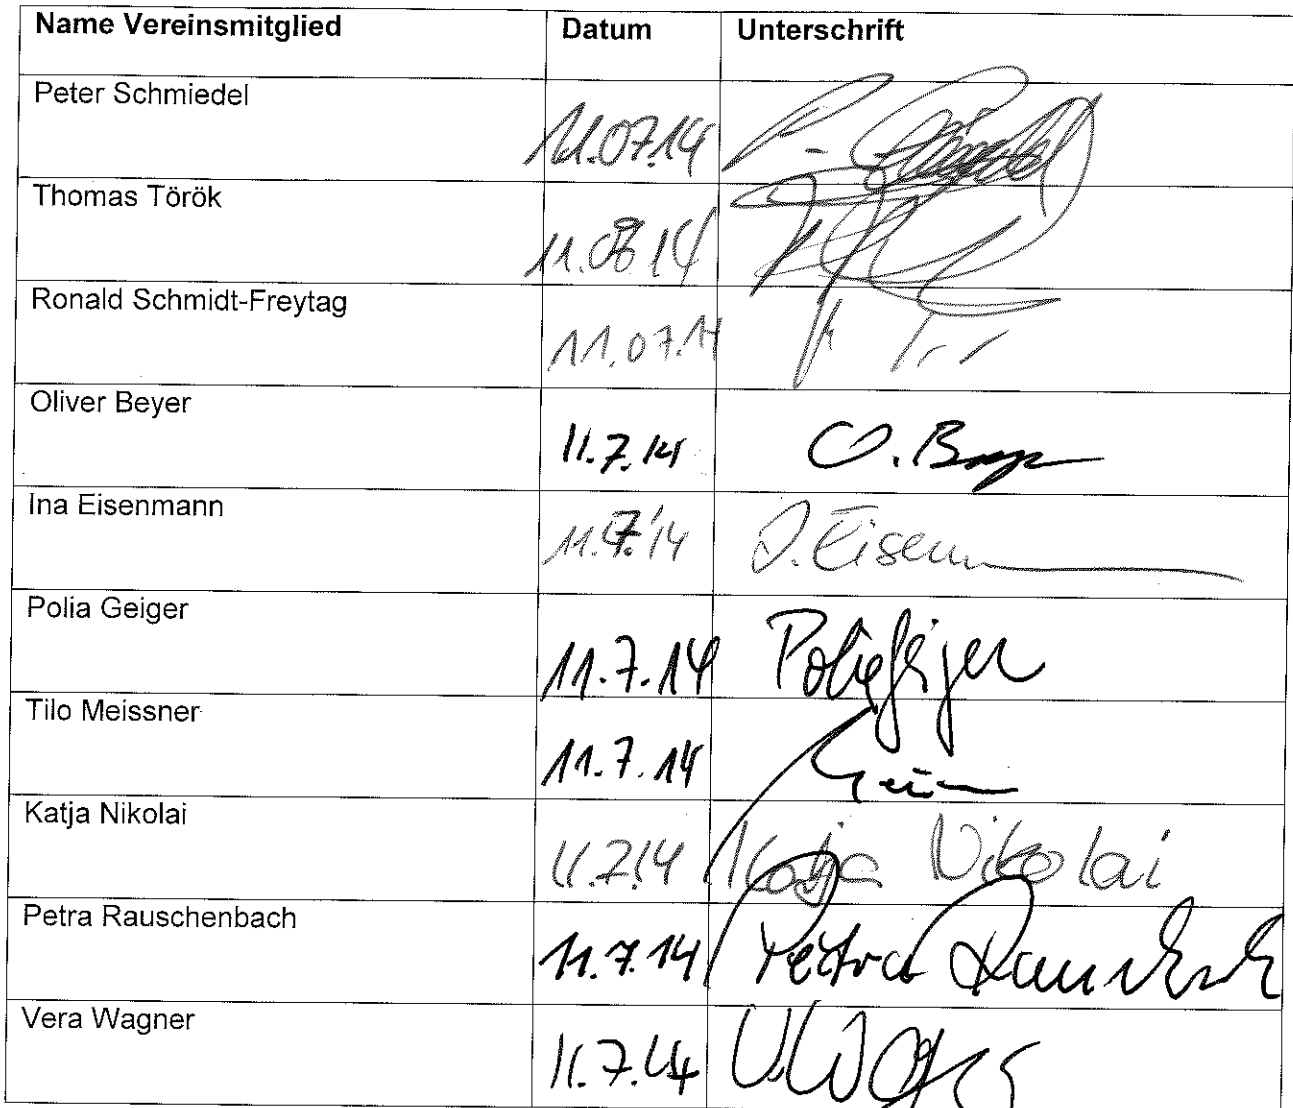 Name Vereinsmitglied Datum Unterschrift
Peter Schmiedel
11.07.14 P.
Thomas Török
11.08.14
Ronald Schmidt-Freytag
11.07.14
Oliver Beyer
11.7.14 O. Beyer
Ina Eisenmann
11.7.14 I. Eisenm
Polia Geiger
11.7.14 Polia Geiger
Tilo Meissner
11.7.14
Katja Nikolai
11.7.14 Katja Nikolai
Petra Rauschenbach
11.7.14 Petra Rauschenbach
Vera Wagner
11.7.14 V. Wagner